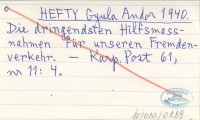 HEFTY Gyula Andor 1940.
Die dringendsten Hilfsmass-
nahmen für unseren Fremden-
verkehr. — Karp. Post 61,
nr 11: 4.